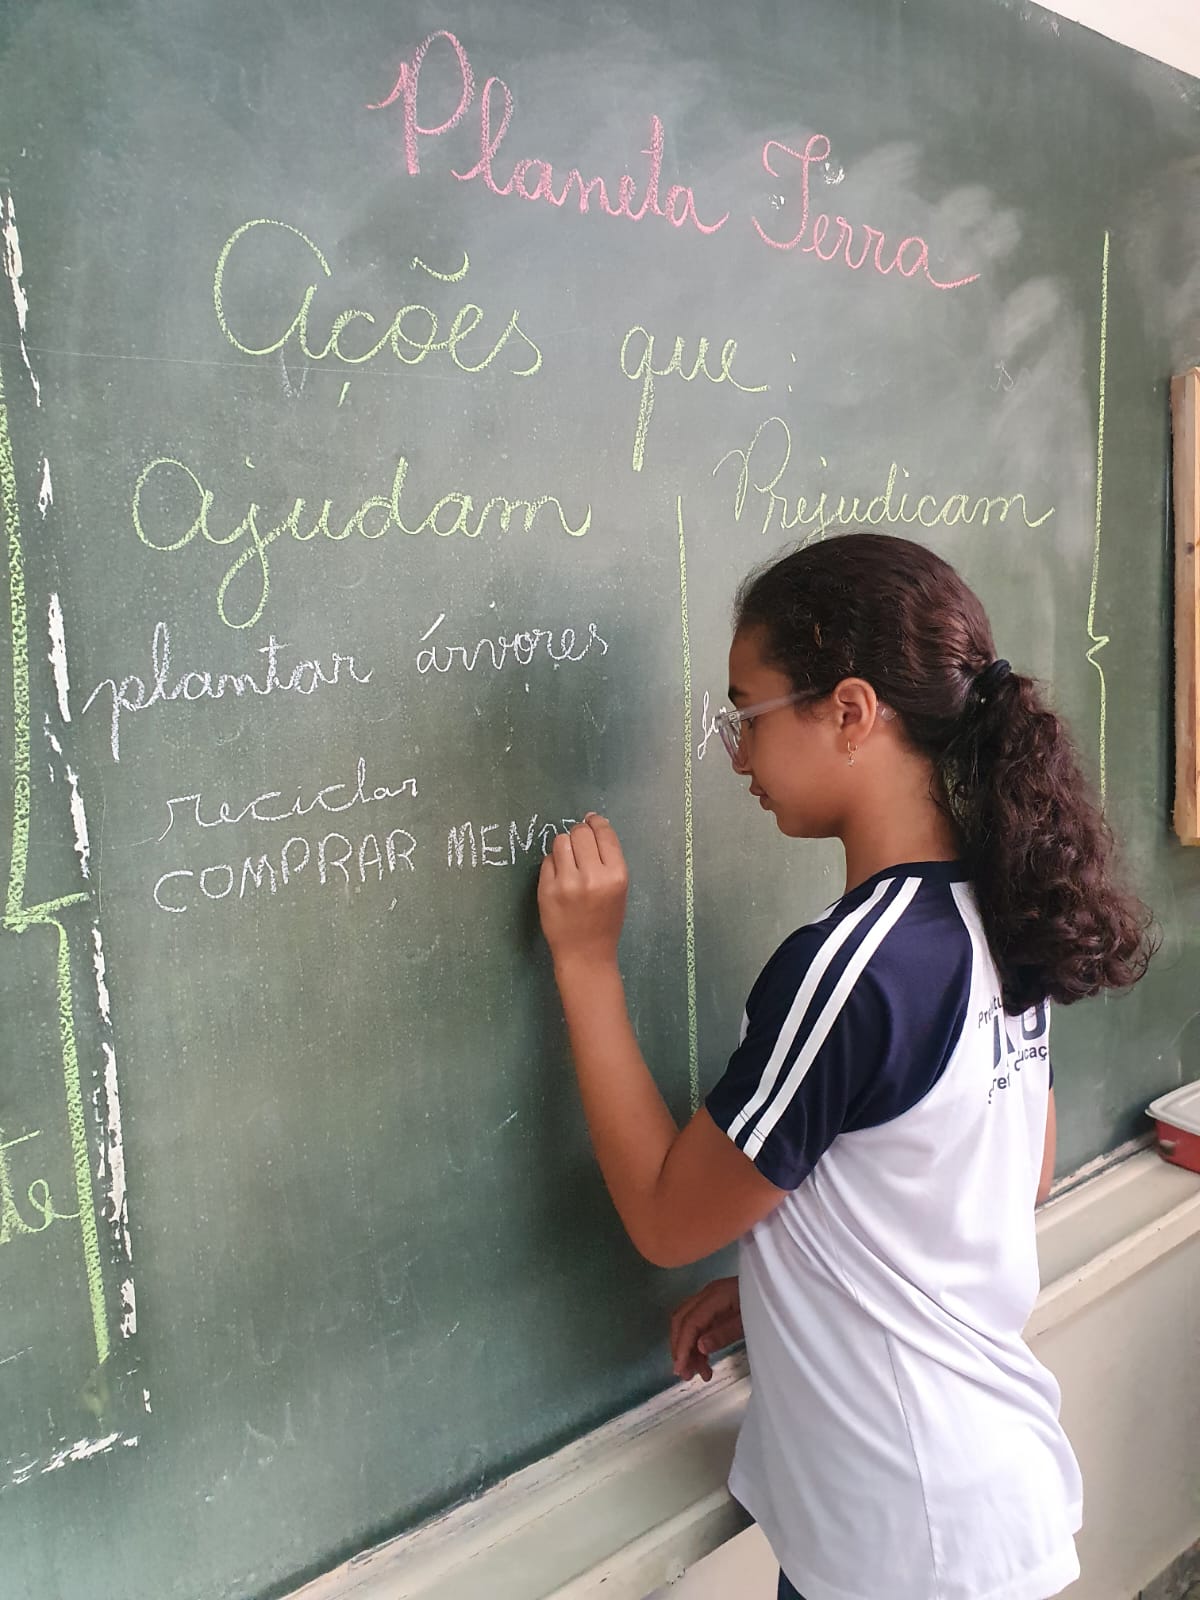 Planeta Terra
Ações que:
Ajudam
Prejudicam
plantar árvores
reciclar
COMPRAR MENOS